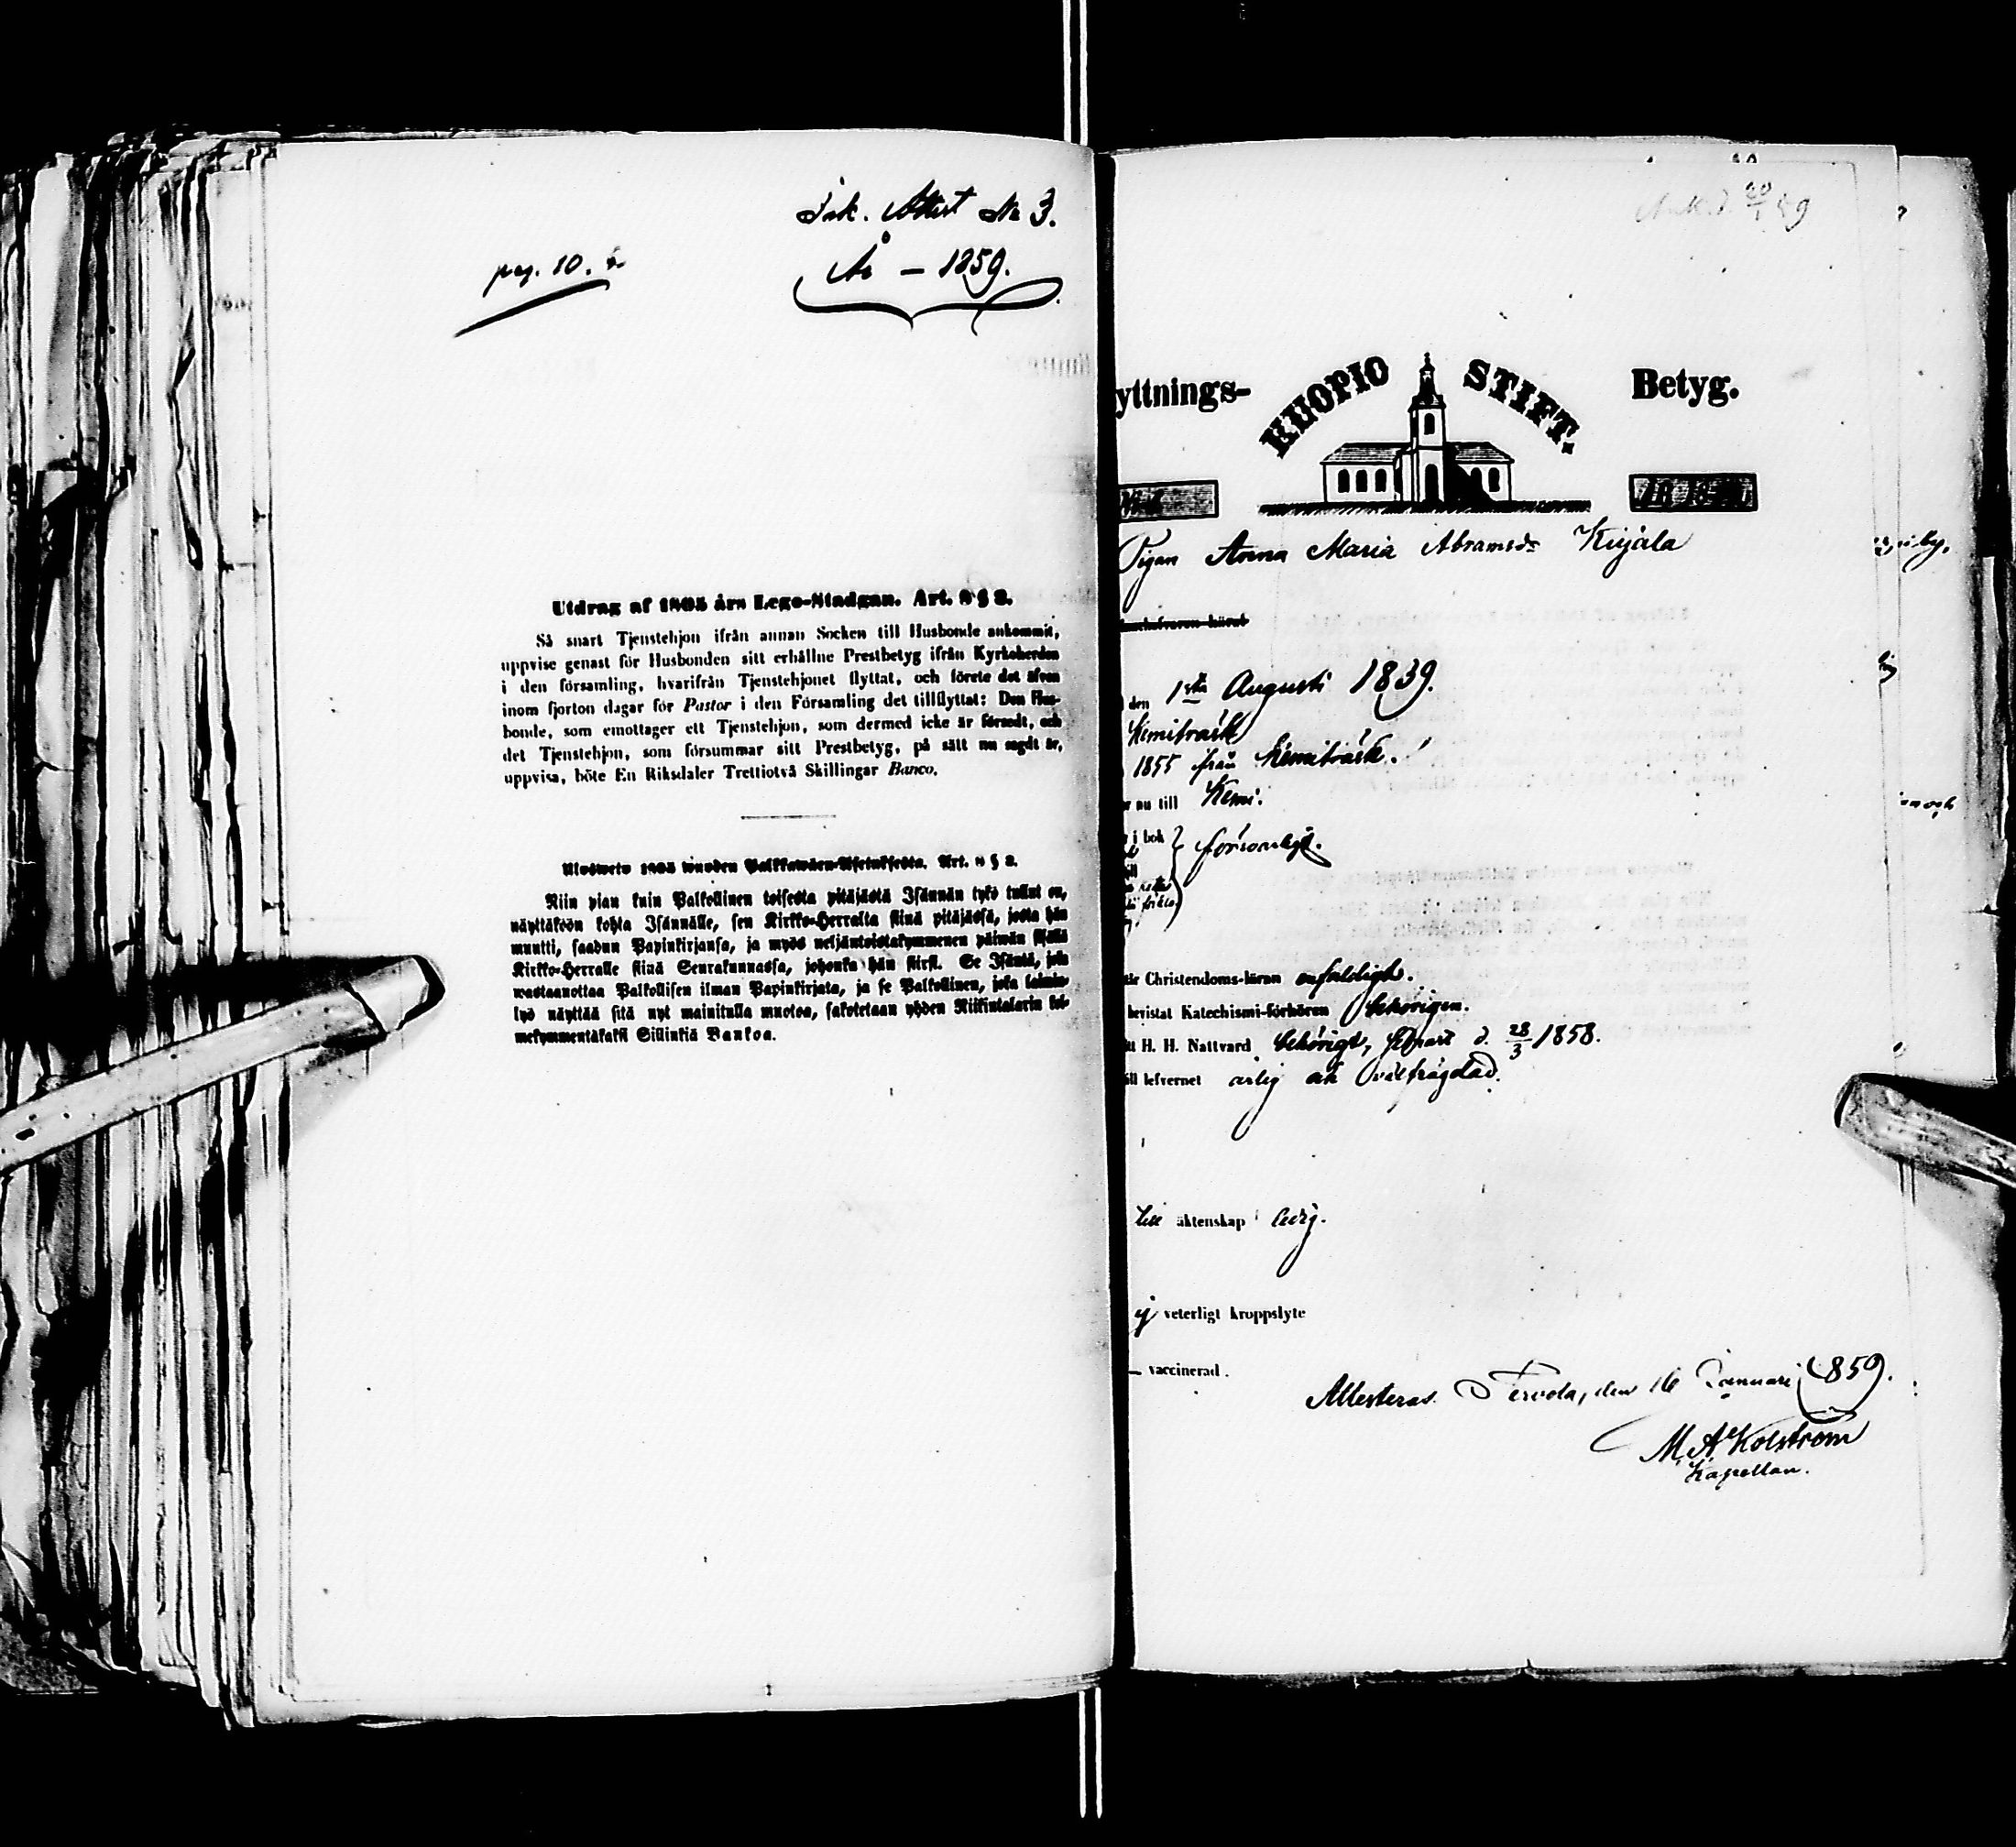 Ink. Attest No 3.
År – 1859.
pag. 10.
Utdrag af 1805 års Lego-Stadgan. Art. 8 § 2.
Så snart Tjenstehjon ifrån annan Socken till Husbonde ankommit,
uppvise genast för Husbonden sitt erhållne Prestbetyg ifrån Kyrkoherden
i den församling, hvarifrån Tjenstehjonet flyttat, och förete det äfven
inom fjorton dagar för Pastor i den Församling det tillflyttat: Den Hus-
bonde, som emottager ett Tjenstehjon, som dermed icke är försedt, och
det Tjenstehjon, som försummar sitt Prestbetyg, på sätt nu sagdt är,
uppvisa, böte En Riksdaler Trettiotvå Skillingar Banco.
Ulosweto 1805 wuoden Palkkawäen-Asetuksesta. Art. 8 § 2.
Niin pian kuin Palkollinen toisesta pitäjästä Isännän tykö tullut on,
näyttäköön kohta Isännälle, sen Kirkko-Herralta siinä pitäjässä, josta hän
muutti, saadun Papinkirjansa, ja myös neljäntoistakymmenen päiwän sisällä
Kirkko-Herralle siinä Seurakunnassa, johonka hän siirsi. Se Isäntä, joka
wastaanottaa Palkollisen ilman Papinkirjata, ja se Palkollinen, joka laimin-
lyö näyttää sitä nyt mainitulla muotoa, sakotetaan yhden Riikintalarin kol-
mekymmentäkaksi Sillinkiä Bankoa.
yttnings- KUOPIO STIFT. Betyg.
Pigan Anna Maria Abramsdr Kujala
den 1sta Augusti 1839.
Kemiträsk
1855 från Kemiträsk.
r nu till Kemi.
i bok försvarligt.
tår Christendoms-läran enfaldigt.
bevistat Katechismi-förhören behörigen.
tt H. H. Nattvard behörigt, senast d. 28/3 1858.
till lefvernet ärlig och välfrägdad.
till äktenskap ledig.
ej veterligt kroppslyte
– vaccinerad.
Attesteras. Tervola, den 16 Januari 1859.
M. A. Kolström
Kapellan.